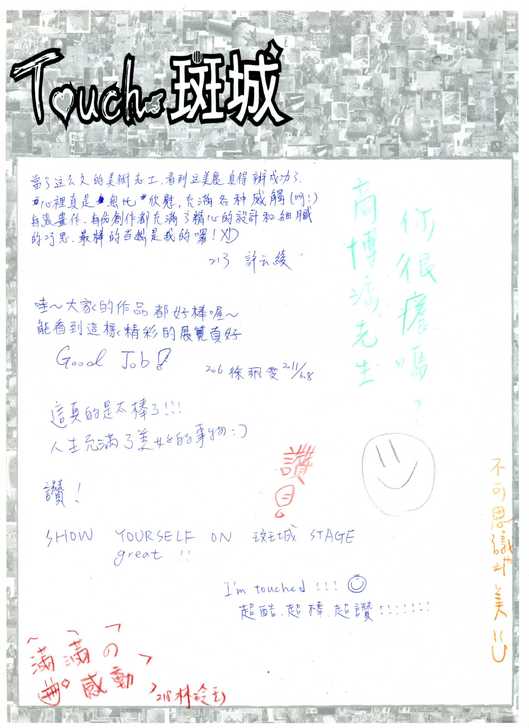 Touch 斑城
當了這么久的美術志工,看到這美展真得辦成功了
心裡真是 欣慰,充滿各種感觸(叫!)
每張畫作、每品創作都充滿了精心的設計和細膩
的巧思,最棒的
213 許云綾
哇~大家的作品都好棒喔~
能看到這樣精彩的展覽真好
Good Job!
206 徐珮雯 2011/6.8
這真的是太棒了!!!
人生充滿了美好的事物:)
讚!
SHOW YOURSELF ON 斑城 STAGE
great !!
I'm touched !!!
超酷、超棒、超讚!!!!!!!
滿滿の
感動
218 林
讚!
先生
你很 嗎?
不可思議 美